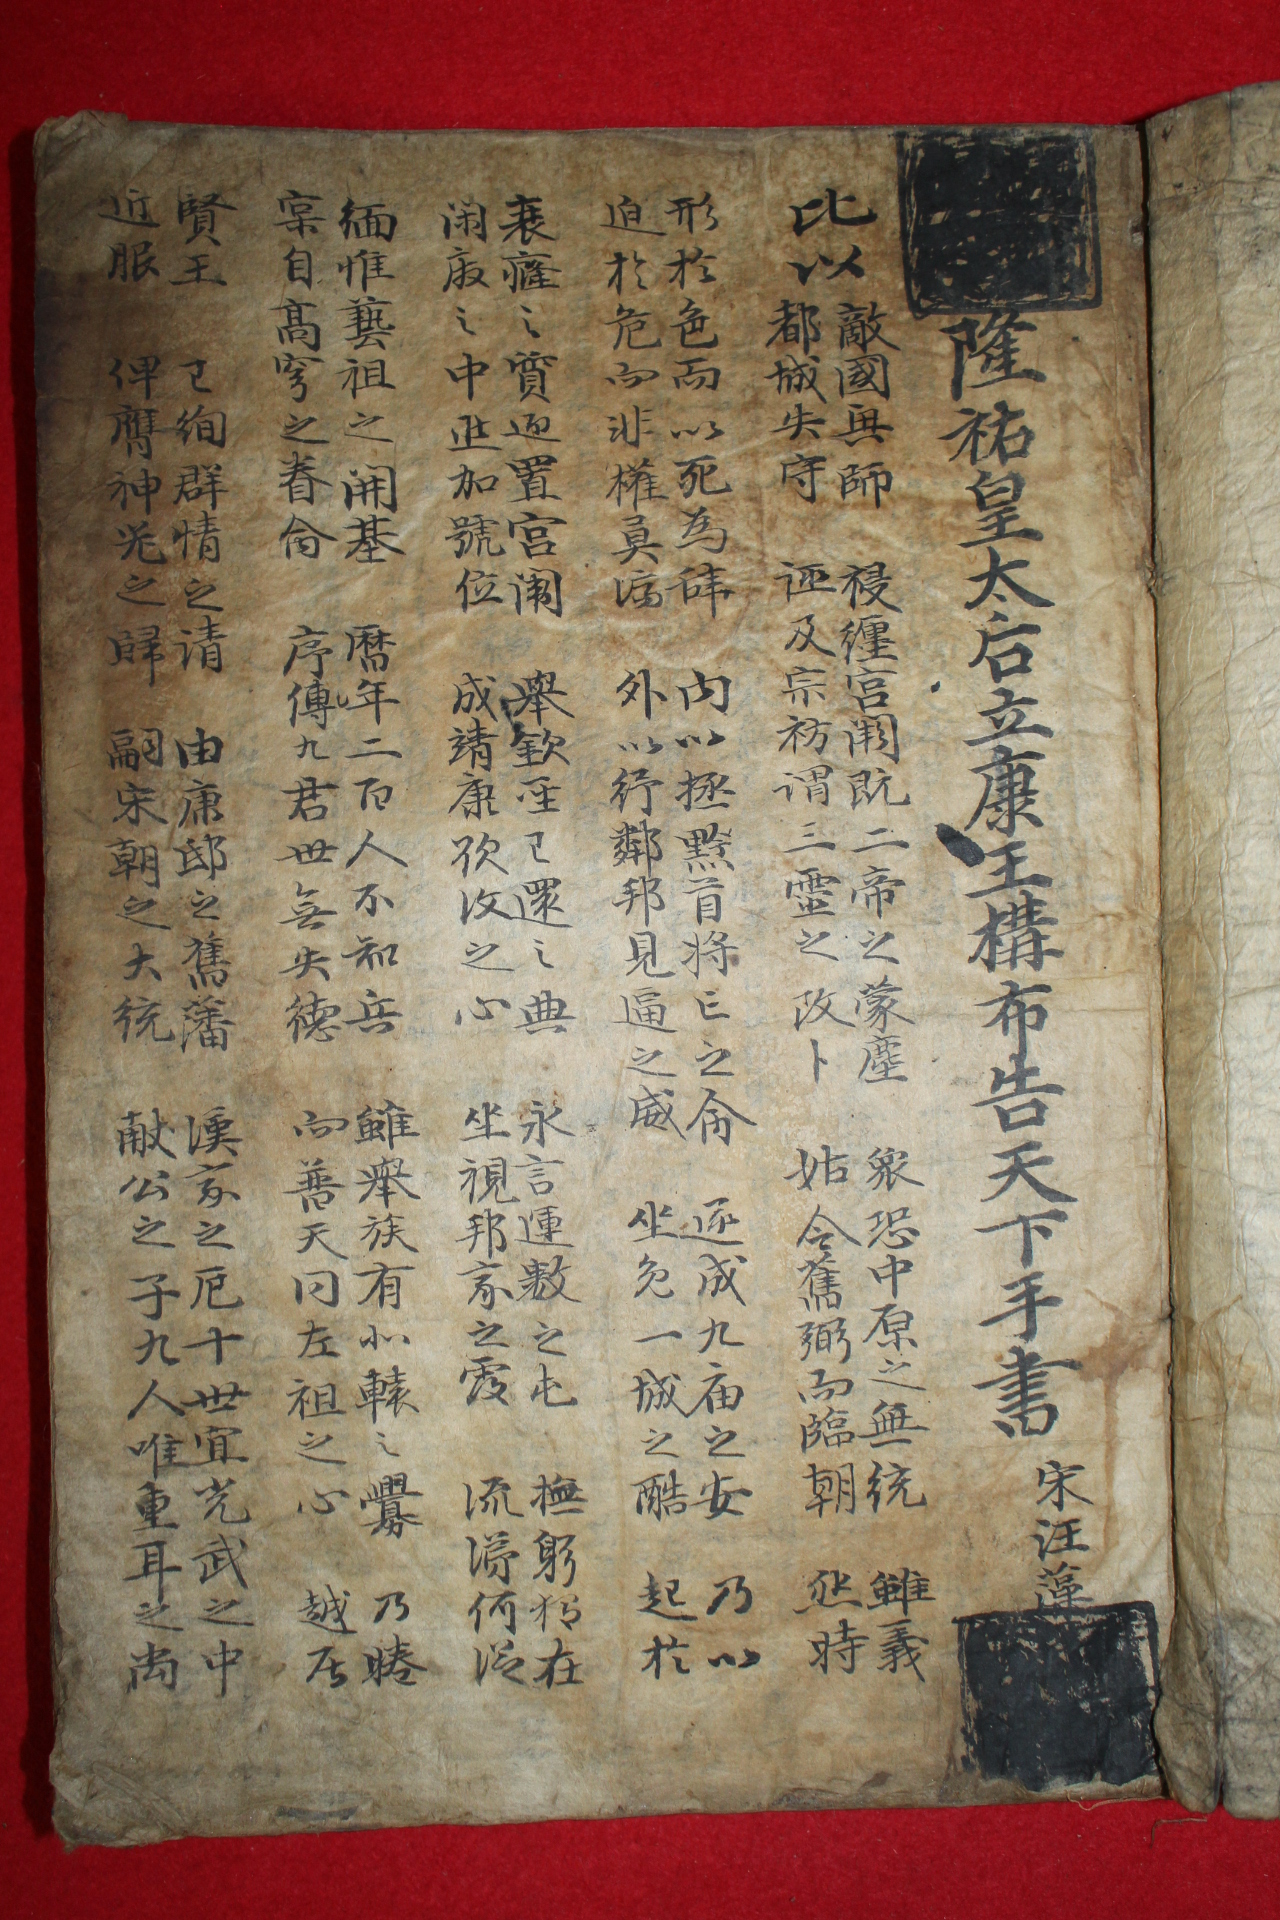 隆祐皇太后立康王構布告天下手書 宋汪藻
比以
敵國興師 祲纏宮闕既二帝之蒙塵 衆恐中原之無統 雖義
都城失守 誣及宗祊謂三靈之改卜 姑令舊弼而臨朝 然時
形於色而以死為辞 内以拯黔首將亡之命 遂成九庙之安 乃以
迫於危而非權莫済 外以紓鄰邦見逼之威 坐免一城之酷 起於
衰癃之質迎置宮闈 舉欽聖已還之典 永言運數之屯 撫躬猶在
閑廢之中進加號位 成靖康欲改之心 坐視邦家之覆 流涕何從
緬惟藝祖之開基 暦年二百人不知兵 雖舉族有北轅之釁 乃睠
寔自高穹之眷命 序傳九君世無失德 而普天同左袒之心 越居
賢王 已徇群情之请 由康邸之舊藩 漢家之厄十世宜光武之中
近服 俾膺神器之歸 嗣宋朝之大統 献公之子九人唯重耳之尚